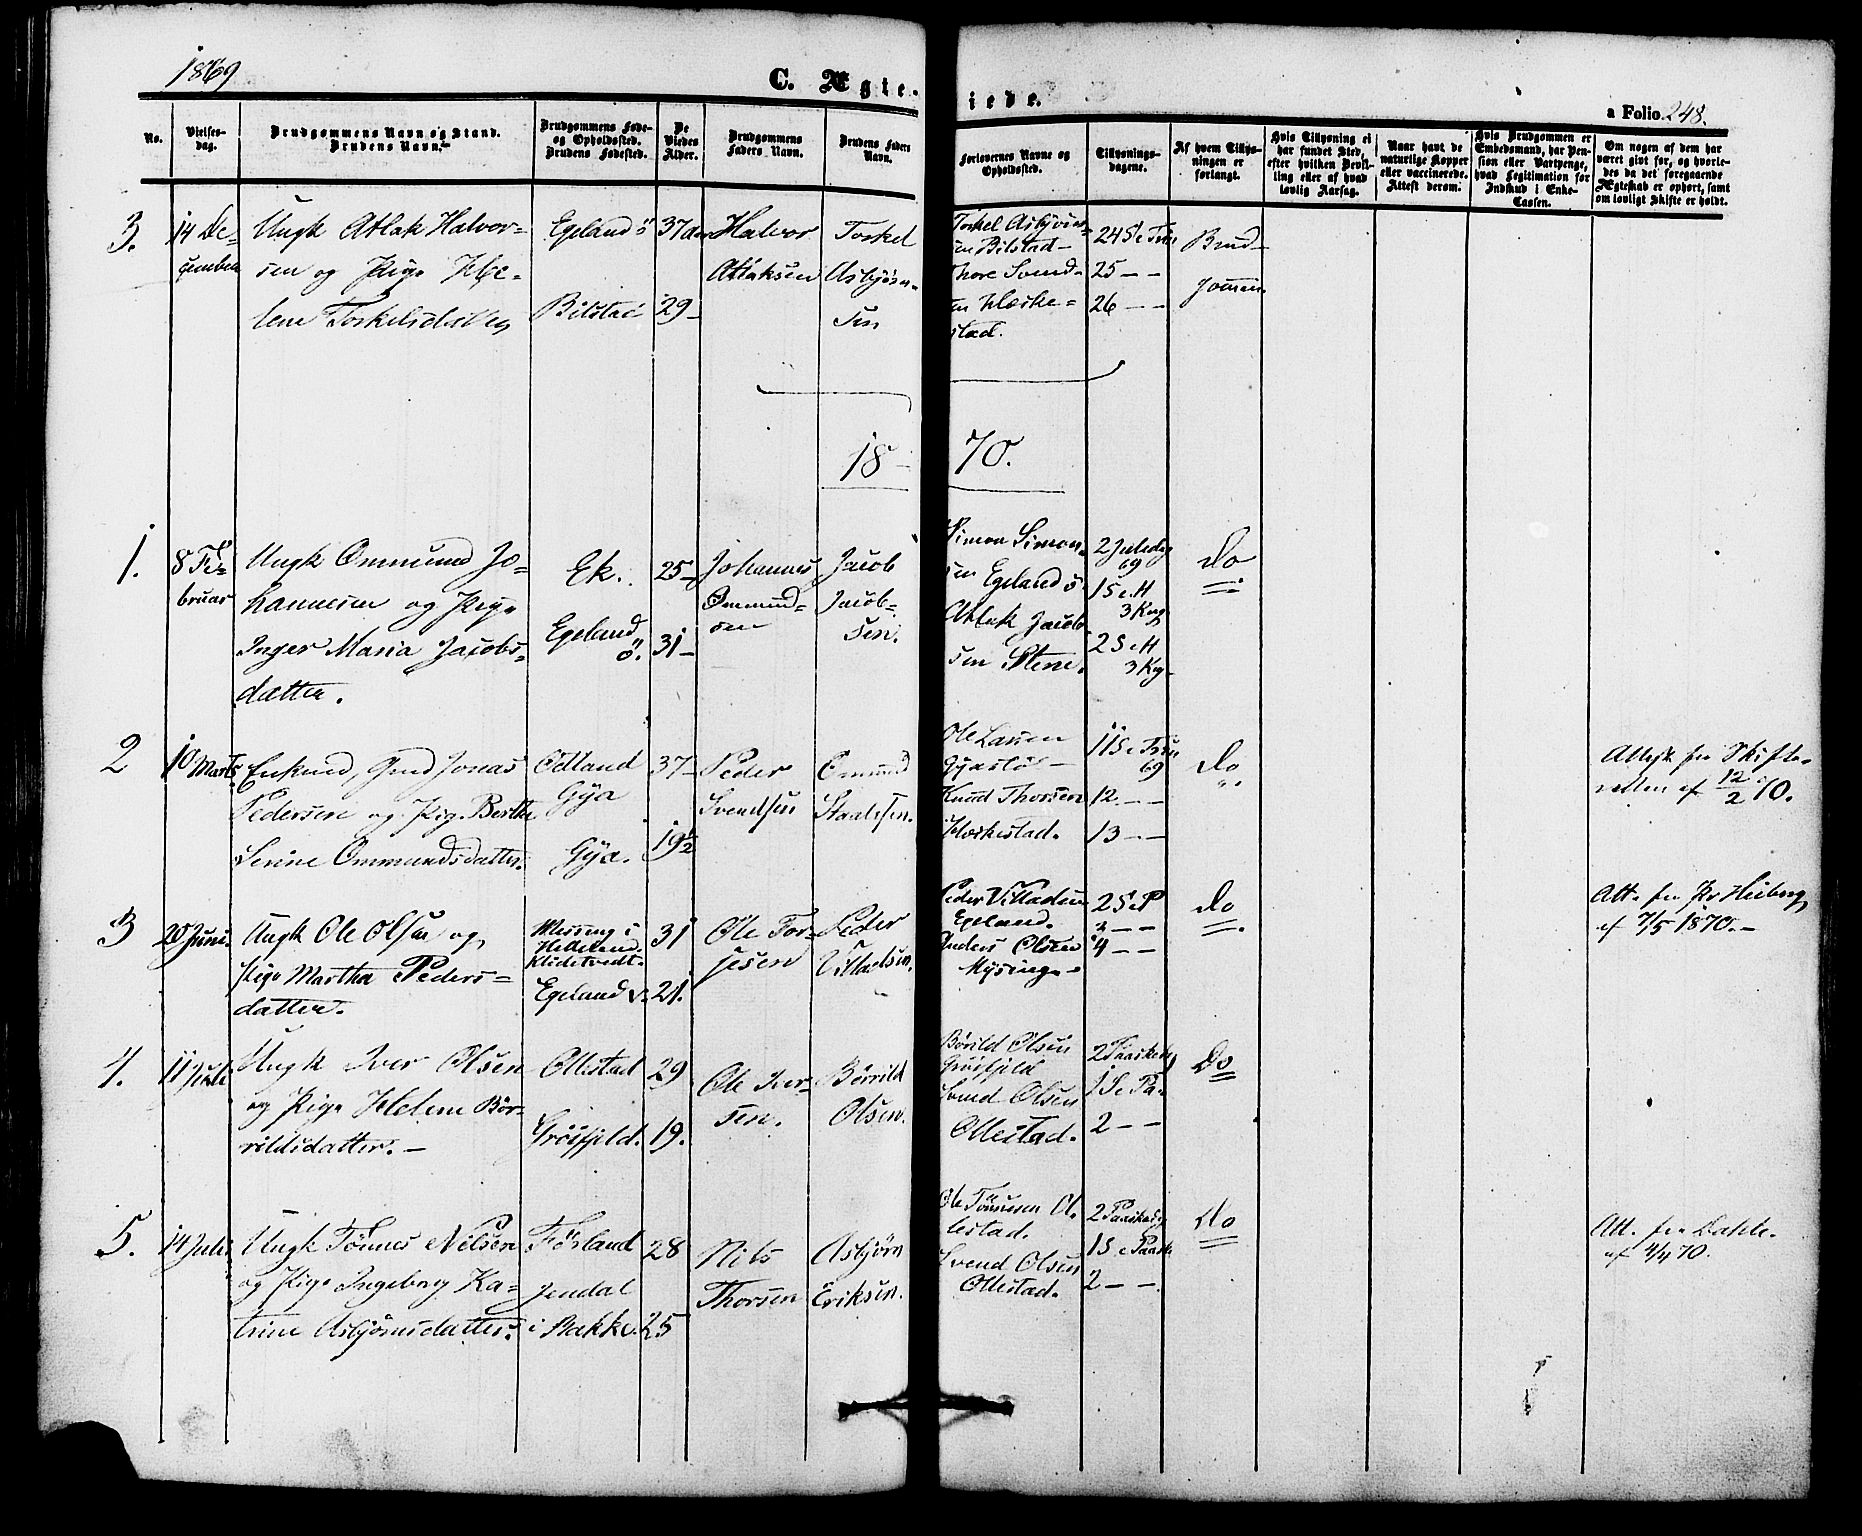 1869
C. Ægte-
iede.
a Folio 248.
No.
Vielses-
dag.
Brudgommens Navn og Stand.
Brudens Navn.
Brudgommens Føde-
og Opholdssted.
Brudens Fødested.
De
Viedes
Alder.
Brudgommens
Faders Navn.
Brudens Faders
Navn.
Forlovernes Navne og
Opholdssted.
Tillysnings-
dagene.
Af hvem Tillys-
ningen er
forlangt.
Hvis Tillysning ei
har fundet Sted,
efter hvilken Bevil-
ling eller af hvad
lovlig Aarsag.
Naar havt de
naturlige Kopper
eller vaccinerede.
Attest derom.
Hvis Brudgommen er
Embedsmand, har Pen-
sion eller Vartpenge,
hvad Legitimation for
Indskud i Enke-
Cassen.
Om nogen af dem har
været givt før, og hvorle-
des da det foregaaende
Ægteskab er ophørt, samt
om lovligt Skifte er holdt.
3.
14 De-
cember
Ungk Atlak Halvor-
sen og Pige He-
lene Torkelsdatter
Egeland ö
Bilstad
37
29 –
Halvor
Atlaksen
Torkel
Asbjörn-
sen
Torkel Asbjörn-
sen Bilstad –
Thore Svend-
sen Hæske-
stad.
24 S e Trin
25 – –
26 – –
Brud-
gommen.
18 –
70.
1.
8 Fe-
bruar
Ungk Ommund Jo-
hannesen og Pige
Inger Maria Jacobs-
datter.
Ek.
Egeland
ö.
25 –
31 –
Johannes
Ommund-
sen
Jacob
Jacob-
sen.
Simon Simon-
sen Egeland ö.
Atlak Jacob-
sen Stene.
2 Juledag
69
1 S e H
3 Kng
2 S e H
3 Kg
Do
2
10 Marts
Enkemd, Gmd Jonas
Pedersen og Pig. Berthe
Serine Ommundsdatter.
Ødland
Gya
Gya.
37 –
19½
Peder
Svendsen
Ommund
Staalesen.
Ole Larsen
Knud Thorsen
Hæskestad.
11 S e Trin
69
12 – –
13 – –
Do
Attest fra Skifte-
retten af 12/2 70.
3
20 Juni.
Ungk Ole Olsen og
Pige Martha Peders-
datter.
Messing i
Helleland
Egeland v.
31
21.
Ole Tor-
jesen
Peder
Villadsen.
Peder Villadsen
Egeland.
Anders Olsen
Mysinge
2 S e P
3 – –
4 – –
Do
Att. fra Pr Heiberg
af 7/5 1870. –
4.
11 Juli
Ungk Iver Olsen
og Pige Helene Bör-
rildsdatter. –
Ollestad
Gröifjeld.
29
19.
Ole Iver-
sen.
Börrild
Olsen.
Börild Olsen
Gröifjeld
Svend Olsen
Ollestad.
2 Paaskedg
1 S e Pa.
2 – –
Do
5.
14 Juli
Ungk Tönnes Nilsen
og Pige Ingeborg Ka-
trine Asbjörnsdatter.
Förland
Jendal
i Bakke.
28
25
Nils
Thorsen
Asbjörn
Eriksen.
Ole Tönnesen Ol-
lestad.
Svend Olsen
Ollestad.
2 Paaskedg
1 S e Paaske
2 – –
Do
Att. fra Dahle.
af 4/4 70.